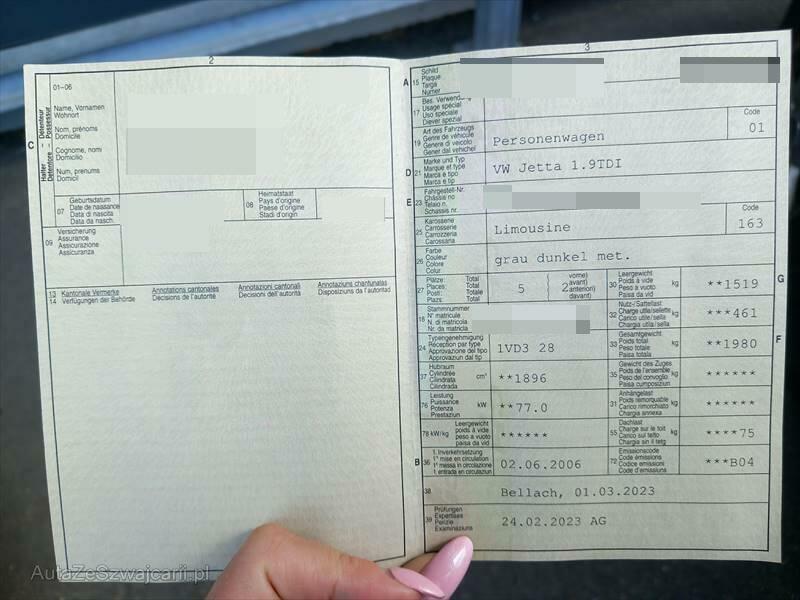 2
01-06
Name, Vornamen
Wohnort
Nom, prénoms
Domicile
Cognome, nomi
Domicilio
Num, prenums
Domicil
C
Halter Détenteur
Detentore Possessur
07
Geburtsdatum
Date de naissance
Data di nascita
Data da nasch.
08
Heimatstaat
Pays d'origine
Paese d'origine
Stadi d'origin
09
Versicherung
Assurance
Assicurazione
Assicuranza
13 Kantonale Vermerke Annotations cantonales Annotazioni cantonali Annotaziuns chantunalas
14 Verfügungen der Behörde Décisions de l'autorité Decisioni dell'autorità Disposiziuns da l'autoritad
3
A 15
Schild
Plaque
Targa
Numer
17
Bes. Verwend
Usage spécial
Uso speciale
Diever spezial
19
Art des Fahrzeugs
Genre de véhicule
Genere di veicolo
Gener dal vehichel
Personenwagen
Code
01
D 21
Marke und Typ
Marque et type
Marca e tipo
Marca e tip
VW Jetta 1.9TDI
E 23
Fahrgestell-Nr.
Châssis no
Telaio n.
Schassis nr.
25
Karosserie
Carrosserie
Carrozzeria
Carossaria
Limousine
Code
163
26
Farbe
Couleur
Colore
Colur
grau dunkel met.
27
Plätze: Total
Places: Total
Posti: Totale
Plazs: Total
5
2
vorne)
avant)
anteriori)
davant)
30
Leergewicht
Poids à vide
Peso a vuoto
Paisa da vid
kg
**1519
G
18
Stammnummer
N° matricule
N. di matricola
Nr. da matricla
32
Nutz-/Sattellast
Charge utile/sellette
Carico utile/sella
Chargia utila/sella
kg
***461
24
Typengenehmigung
Réception par type
Approvazione del tipo
Approvaziun dal tip
1VD3 28
33
Gesamtgewicht
Poids total
Peso totale
Paisa totala
kg
**1980
F
37
Hubraum
Cylindrée
Cilindrata
Cilindrada
cm³
**1896
35
Gewicht des Zuges
Poids de l'ensemble
Peso del convoglio
Paisa cumposiziun
kg
******
76
Leistung
Puissance
Potenza
Prestaziun
kW
**77.0
31
Anhängelast
Poids remorquable
Carico rimorchiato
Chargia annexa
kg
******
78 kW/kg
Leergewicht
poids à vide
peso a vuoto
paisa da vid
******
55
Dachlast
Charge sur le toit
Carico sul tetto
Chargia sin il tetg
kg
****75
B 36
1. Inverkehrsetzung
1re mise en circulation
1a messa in circolazione
1. entrada en circulaziun
02.06.2006
72
Emissionscode
Code émissions
Codice emissioni
Code d'emissiuns
***B04
38
Bellach, 01.03.2023
39
Prüfungen
Expertises
Perizie
Examinaziuns
24.02.2023 AG
AutaZeSzwajcarii.pl